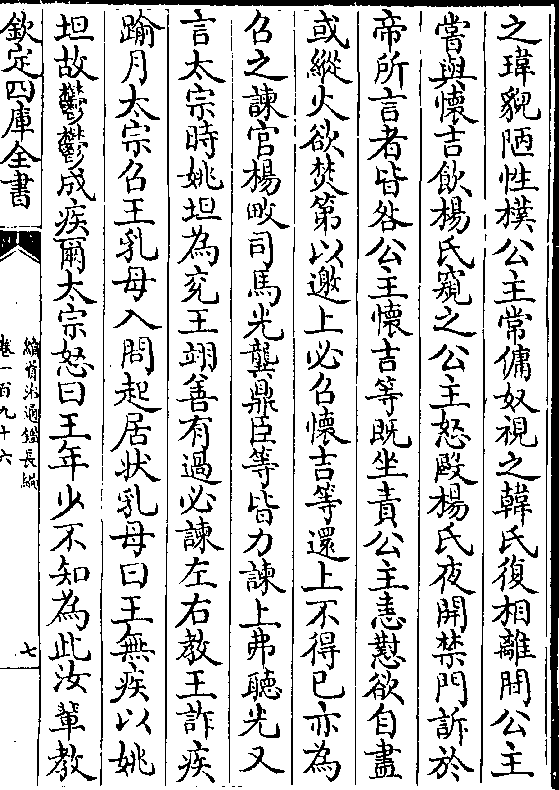 之瑋貌陋性樸公主常傭奴視之韓氏復相離間公主
嘗與懷吉飲楊氏窺之公主怒毆楊氏夜開禁門訴於
帝所言者皆咎公主懷吉等既坐責公主恚懟欲自盡
或縱火欲焚第以邀上必召懷吉等還上不得已亦為
召之諫官楊畋司馬光龔鼎臣等皆力諫上弗聽光又
言太宗時姚坦為兖王翊善有過必諫左右教王詐疾
踰月太宗召王乳母入問起居狀乳母曰王無疾以姚
坦故鬱鬱成疾爾太宗怒曰王年少不知為此汝輩教
欽定四庫全書
續資治通鑑長編
卷一百九十六
七